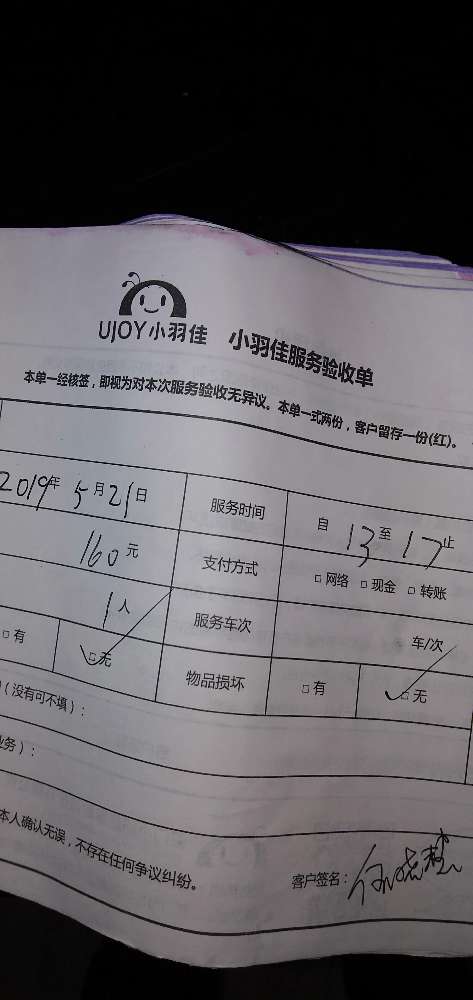 UJOY小羽佳 小羽佳服务验收单
本单一经核签，即视为对本次服务验收无异议。本单一式两份，客户留存一份(红)。
2019年 5月21日 服务时间 自 13 至 17 止
160元 支付方式 □网络 □现金 □转账
1人 服务车次 车/次
□有 □无 物品损坏 □有 □无
(没有可不填)：
业务)：
本人确认无误，不存在任何争议纠纷。
客户签名：